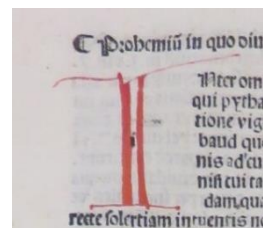 ¶ Prohemiū in quo diui
INter om
qui pytha
tione vig
haud que
nis ad'cu
nisi cui ta
dam, qua
recte solertiam intuentis no